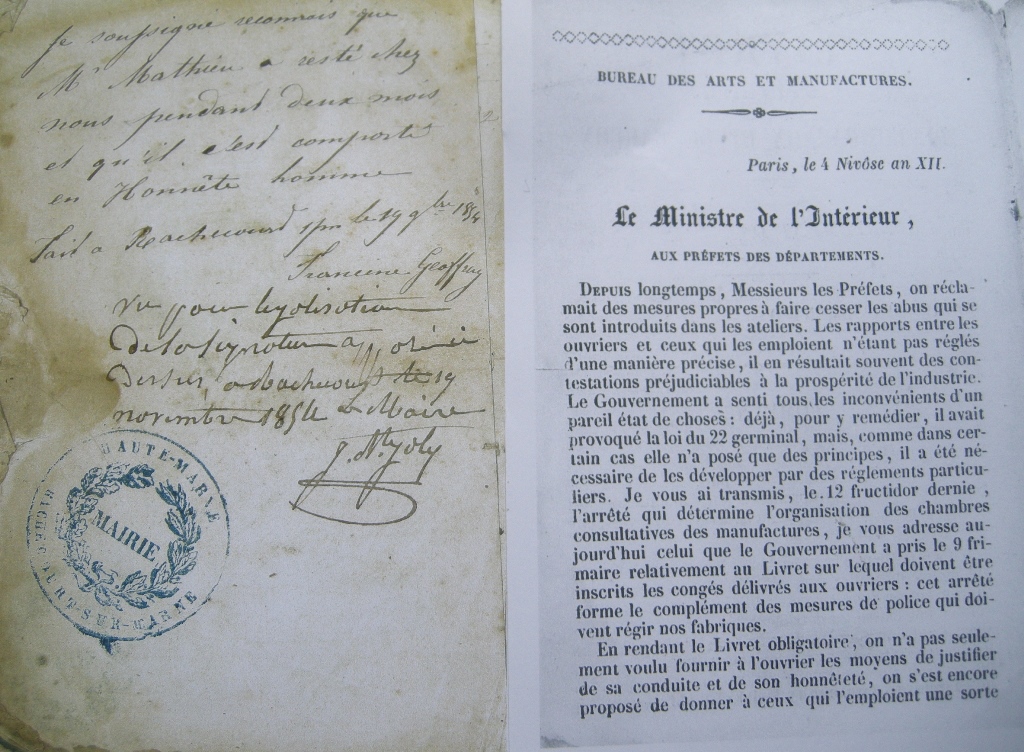 Je soussigné reconnais que
Mr Mathieu a resté chez
nous pendant deux mois
et qu'il c'est comporté
en Honnête homme
Fait a Rachecourt s/m le 19 9bre 1854
Francine Geoffroy
vu pour legalisation
de la signature apposée
dessus a Rachecourt le 19
novembre 1854 le Maire
J. Nty Joly
HAUTE-MARNE
MAIRIE
SUR-MARNE
2
BUREAU DES ARTS ET MANUFACTURES.
Paris, le 4 Nivôse an XII.
Le Ministre de l'Intérieur,
AUX PRÉFETS DES DÉPARTEMENTS.
DEPUIS longtemps, Messieurs les Préfets, on récla-
mait des mesures propres à faire cesser les abus qui se
sont introduits dans les ateliers. Les rapports entre les
ouvriers et ceux qui les emploient n'étant pas réglés
d'une manière précise, il en résultait souvent des con-
testations préjudiciables à la prospérité de l'industrie.
Le Gouvernement a senti tous les inconvénients d'un
pareil état de choses : déjà, pour y remédier, il avait
provoqué la loi du 22 germinal, mais, comme dans cer-
tain cas elle n'a posé que des principes, il a été né-
cessaire de les développer par des réglements particu-
liers. Je vous ai transmis, le 12 fructidor dernie ,
l'arrêté qui détermine l'organisation des chambres
consultatives des manufactures, je vous adresse au-
jourd'hui celui que le Gouvernement a pris le 9 fri-
maire relativement au Livret sur lequel doivent être
inscrits les congés délivrés aux ouvriers : cet arrêté
forme le complément des mesures de police qui doi-
vent régir nos fabriques.
En rendant le Livret obligatoire, on n'a pas seule-
ment voulu fournir à l'ouvrier les moyens de justifier
de sa conduite et de son honnêteté, on s'est encore
proposé de donner à ceux qui l'emploient une sorte